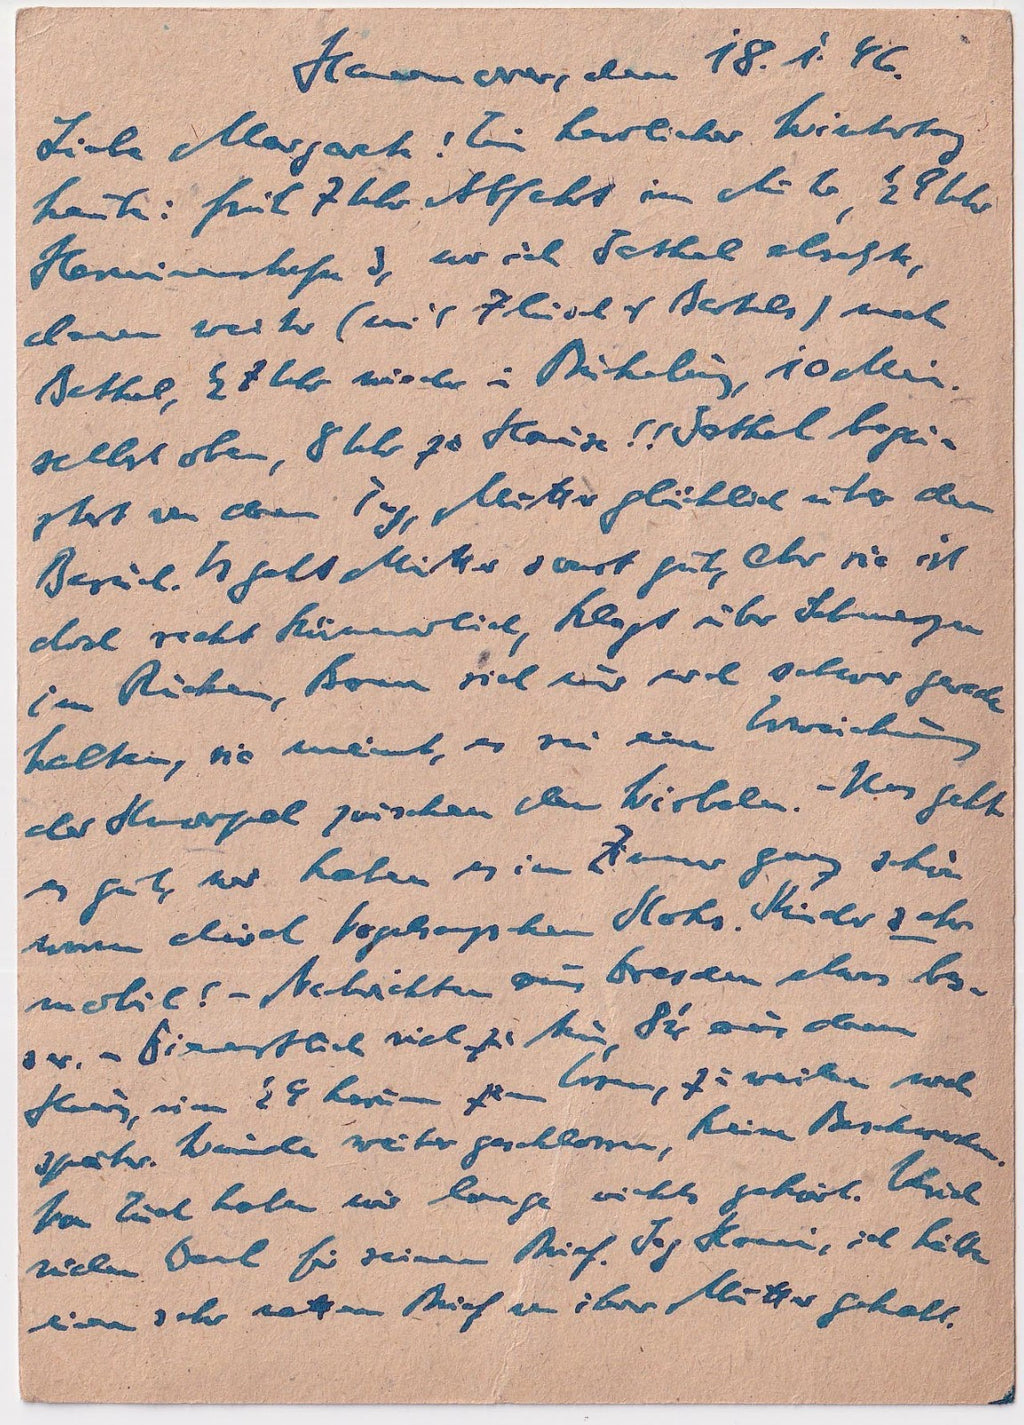 Hannover, den 18. 1. 46.
Liebe Margarete! Ein herrlicher Wintertag
heute: früh 7 Uhr Abfahrt im Auto, ½ 9 Uhr
3, wo ich absetzte,
dann weiter (mit ) nach
Bethel, ½ 7 Uhr wieder in Bückeburg, 10 Min.
selbst oben, 8 Uhr zu Hause!! begei-
stert von dem Tag, Mutter glücklich über den
Besuch. Es geht Mutter sonst gut, aber sie ist
doch recht kümmerlich, klagt über Schmerzen
im Rücken, kann sich nur noch schwer gerade
halten, sie meint, es sei eine Erweichung
der Knorpel zwischen den Wirbeln. – Uns geht
es gut, wir haben es im Zimmer ganz schön
warm durch Koks. Kinder sehr
mobil! – Nachrichten aus Dresden etwas bes-
ser. – Dienstlich viel zu tun, 8¼ aus dem
Haus, um ½ 4 herum zum Essen, zuweilen noch
später. Wunde weiter geschlossen, keine Beschwerden.
Von Euch haben wir lange nichts gehört. Ulrich
vielen Dank für seinen Brief. Sag Hanni, ich hätte
einen sehr netten Brief von ihrer Mutter gehabt.